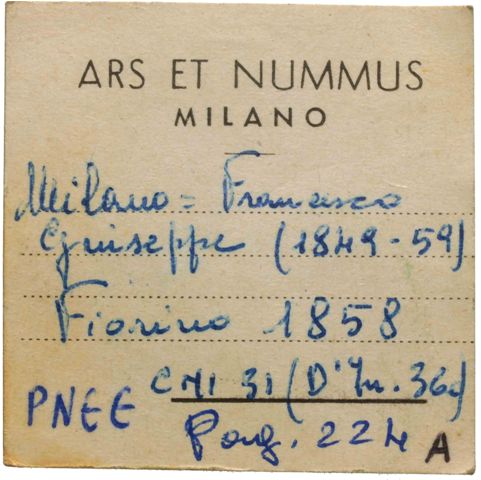 ARS ET NUMMUS
MILANO
Milano = Francesco
Giuseppe (1849-59)
Fiorino 1858
CNI 31 (D'In. 36c)
PNEE
Pag. 224 A